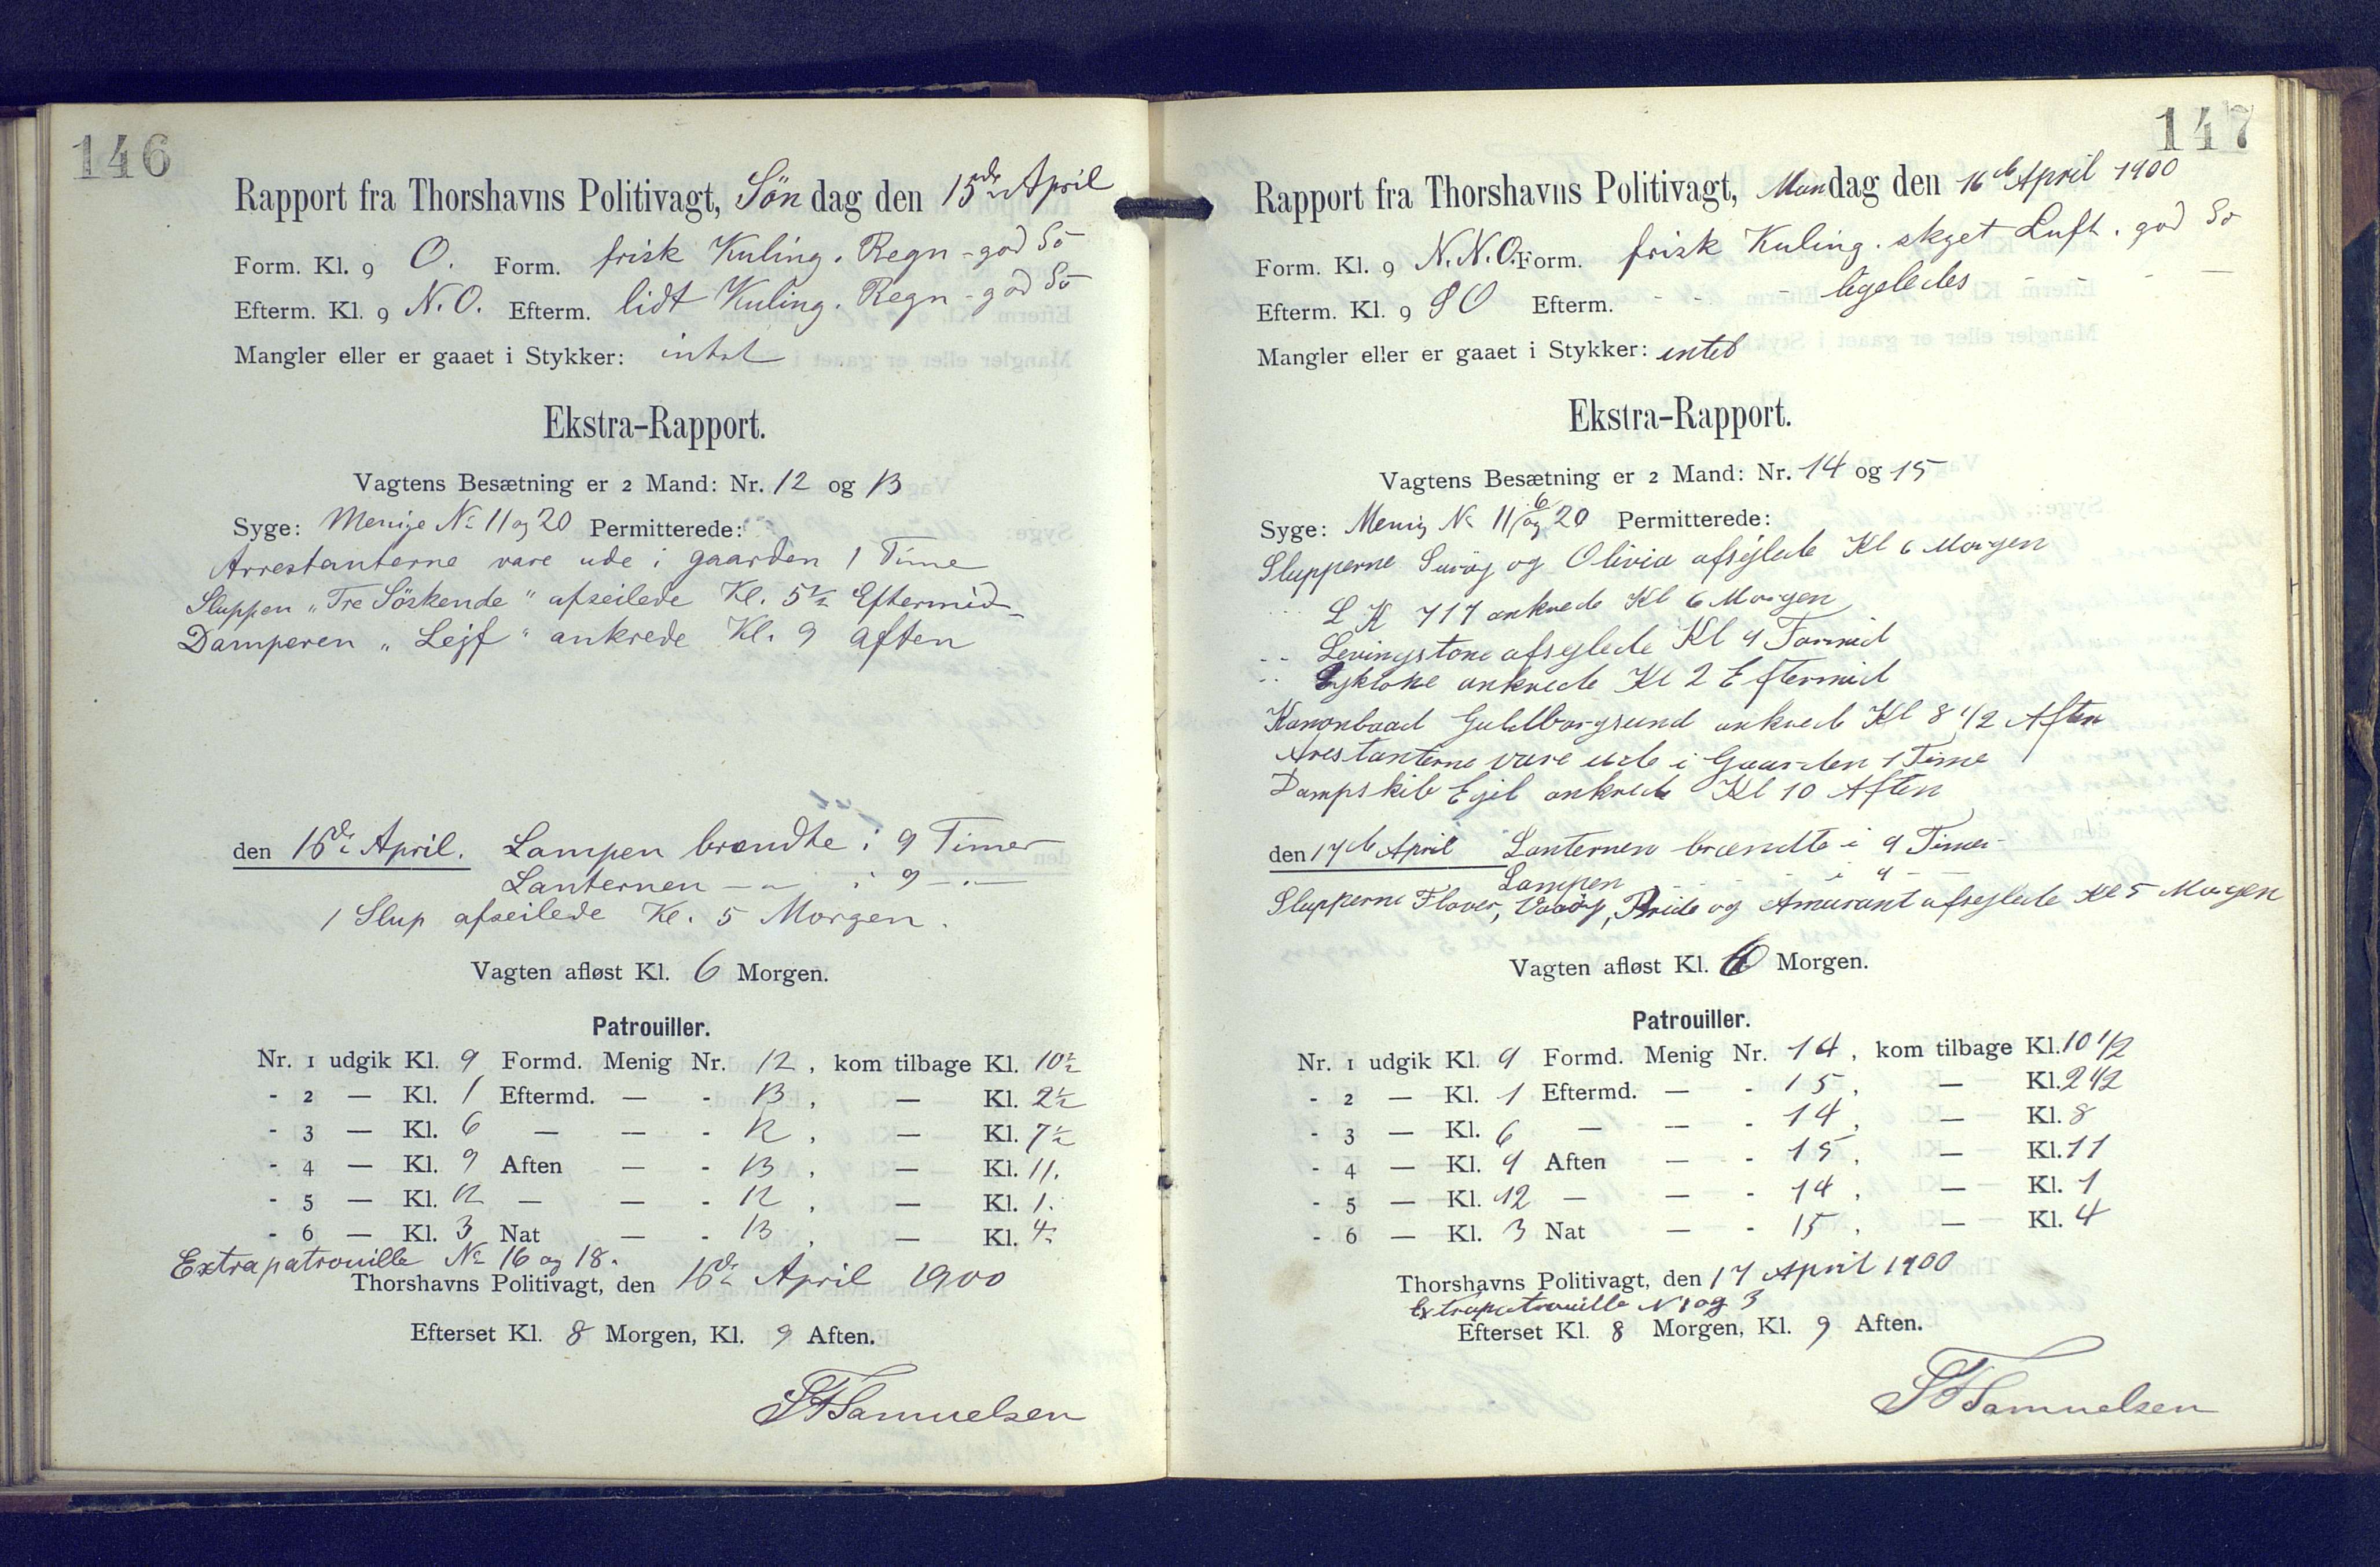 146
Rapport fra Thorshavns Politivagt, Söndag den 15de April
Form. Kl. 9 O. Form. frisk Kuling. Regn - god Sö
Efterm. Kl. 9 N.O. Efterm. lidt Kuling. Regn - god Sö
Mangler eller er gaaet i Stykker: intet
Ekstra-Rapport.
Vagtens Besætning er 2 Mand: Nr. 12 og 13
Syge: Menige No 11 og 20 Permitterede:
Arrestanterne vare ude i gaarden 1 Time
Sluppen „Tre Söskende" afseilede Kl. 5½ Eftermid-
Damperen „Lejf" ankrede Kl. 9 Aften
den 16de April. Lampen brændte i 9 Timer
Lanternen — " — i 9 — " —
1 Slup afseilede Kl. 5 Morgen.
Vagten afløst Kl. 6 Morgen.
Patrouiller.
Nr. 1 udgik Kl. 9 Formd. Menig Nr. 12, kom tilbage Kl. 10½
- 2 — Kl. 1 Eftermd. — - 13, — Kl. 2½
- 3 — Kl. 6 — — - 12, — Kl. 7½
- 4 — Kl. 9 Aften — - 13, — Kl. 11.
- 5 — Kl. 12 — — - 12, — Kl. 1.
- 6 — Kl. 3 Nat — - 13, — Kl. 4½
Extrapatrouille No 16 og 18.
Thorshavns Politivagt, den 16de April 1900
Efterset Kl. 8 Morgen, Kl. 9 Aften.
Samuelsen
147
Rapport fra Thorshavns Politivagt, Mandag den 16de April 1900
Form. Kl. 9 N.N.O. Form. frisk Kuling. skyet Luft. god Sö
Efterm. Kl. 9 SO Efterm. - - - ligeledes - - - -
Mangler eller er gaaet i Stykker: intet
Ekstra-Rapport.
Vagtens Besætning er 2 Mand: Nr. 14 og 15
Syge: Menig No 11, 6 og 20 Permitterede:
Slupperne Suröy og Olivia afsejlede Kl 6 Morgen
" L K 717 ankrede Kl 6 Morgen
" Levingstone afsejlede Kl 9 Formid
" ankrede Kl 2 Eftermid
Kanonbaad Guldborgsund ankrede Kl 8 1/2 Aften
Arestanterne vare ude i Gaarden 1 Time
Dampskib Egil ankrede Kl 10 Aften
den 17de April Lanternen brændte i 9 Timer-
Lampen - - - i 9 - -
Slupperne Flover, Vaaöy, Pride og Amarant afsejlede Kl 5 Morgen
Vagten afløst Kl. 6 Morgen.
Patrouiller.
Nr. 1 udgik Kl. 9 Formd. Menig Nr. 14, kom tilbage Kl. 10 1/2
- 2 — Kl. 1 Eftermd. — - 15, — Kl. 2 1/2
- 3 — Kl. 6 — — - 14, — Kl. 8
- 4 — Kl. 9 Aften — - 15, — Kl. 11
- 5 — Kl. 12 — — - 14, — Kl. 1
- 6 — Kl. 3 Nat — - 15, — Kl. 4
Thorshavns Politivagt, den 17 April 1900
Extrapatrouille N 1 og 3
Efterset Kl. 8 Morgen, Kl. 9 Aften.
Samuelsen